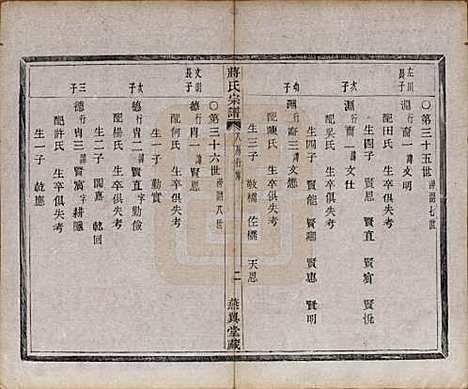 ○第三十五世 所謂七世
左川長子
淵 行甯一 諱文明
配田氏 生卒俱失考
生四子 賢恩 賢直 賢賓 賢悅
次子
淵 行甯二 諱文仕
配梁氏 生卒俱失考
生四子 賢能 賢 賢惠 賢明
淵 行甯三 諱文
配陳氏 生卒俱失考
生三子 敦橋 佐橋 天恩
蔣氏宗譜
卷八
二
燕翼堂藏
○第三十六世 所謂八世
文 長子
德 行肖一 諱賢
配何氏 生卒俱失考
生一子 勤實
次子
德 行肖二 諱賢直 字勤儉
配楊氏 生卒俱失考
生二子 開嘉 乾回
三子
德 行肖三 諱賢賓 字耕
配許氏 生卒俱失考
生一子 乾應